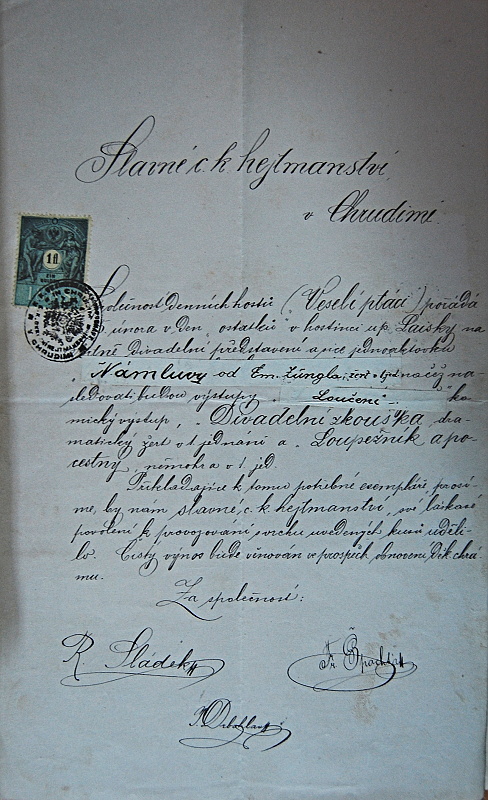 Slavné c. k. hejtmanství
v Chrudimi.
1
Společnost denních hostů (Veselí ptáci) pořádá
února v den, ostatků v hostinci u p. Laisky
divadelní představení a sice jednoaktovku
"Námluvy od Em. Züngla, načež na-
sledovati budou výstupy "Loučení" ko-
mický výstup, "Divadelní zkouška, dra-
matický žert o 1 jednání a "Loupežník a po-
cestný, němohra o 1 jed.
Příkládajíce k tomu potřebné exempláře, prosí-
me, by nam slavné c. k. hejtmanství, své láskavé
povolení k provozování svrchu uvedených kusů uděli-
lo. Čistý výnos bude věnován ve prospěch obnovení děk. chrá-
mu.
Za společnost:
R Sládek